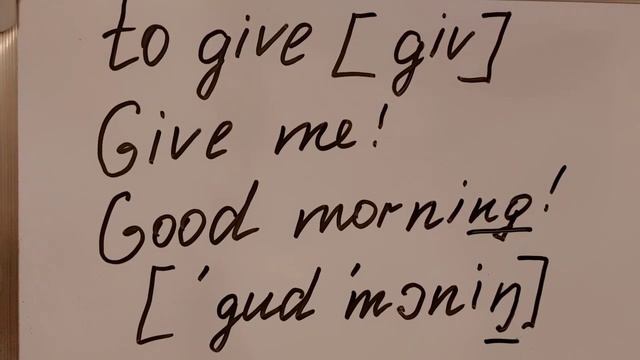 to give [giv]
Give me!
Good morning!
['gud 'mɔniŋ]